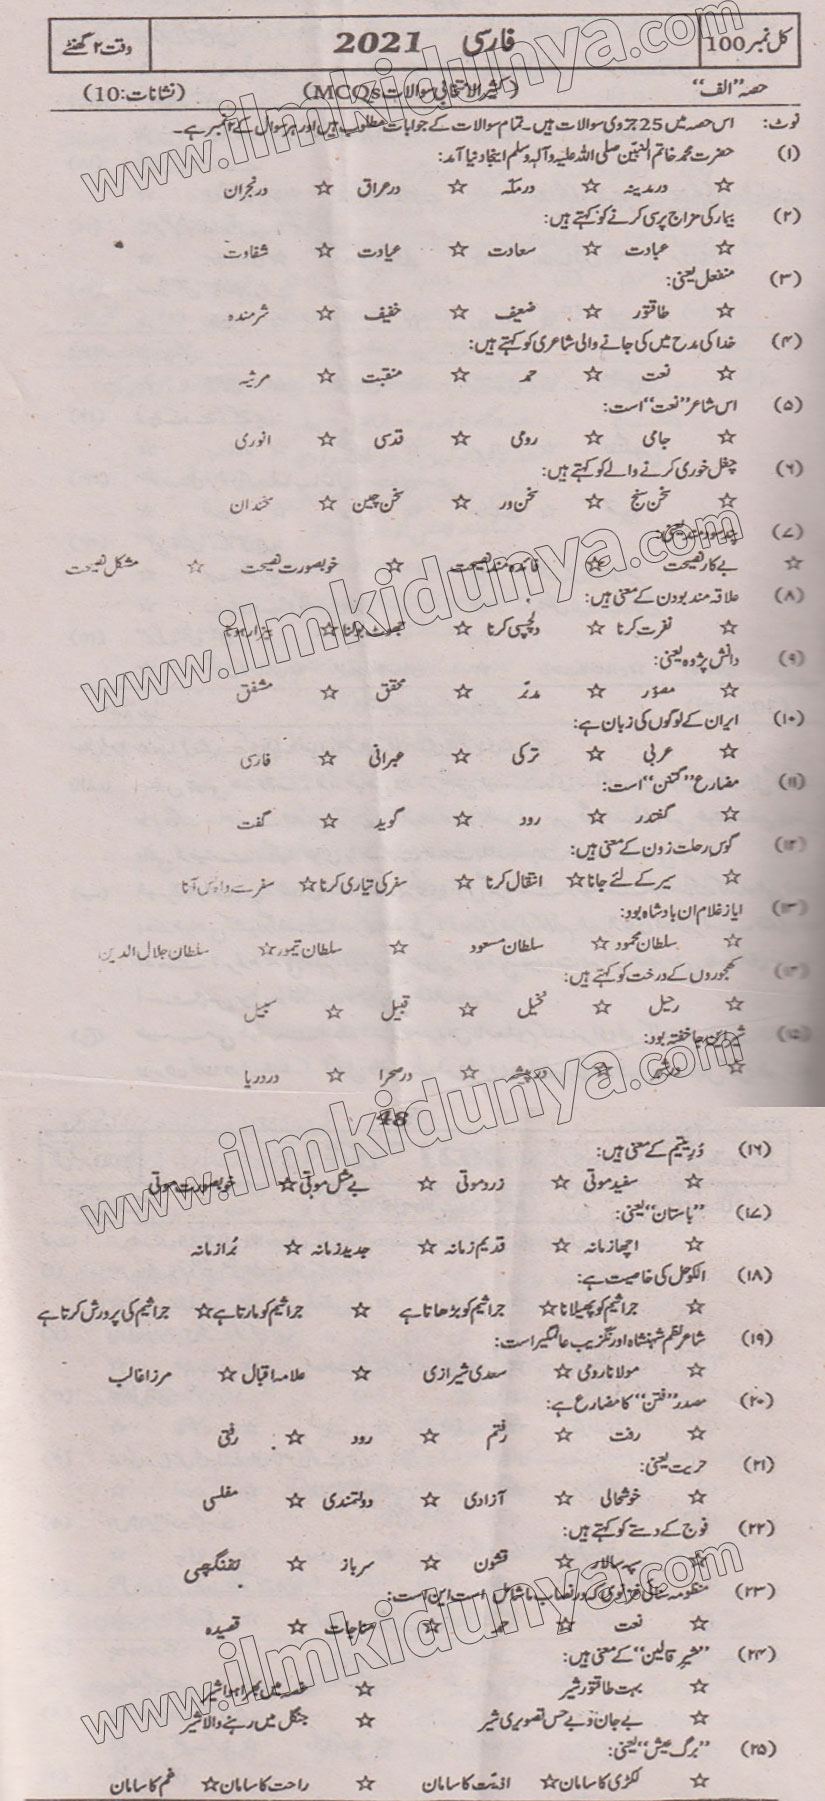 کل نمبر 100 فارسی 2021 وقت ۲ گھنٹے
حصہ "الف" (کثیر الانتخابی سوالات MCQs) (نشانات:10)
نوٹ: اس حصہ میں 25 جزوی سوالات ہیں۔ تمام سوالات کے جوابات مطلوب ہیں اور ہر سوال کے ۲ نمبر ہے۔
(۱) حضرت محمد خاتم النبیین صلی اللہ علیہ وآلہ وسلم اینجا دنیا آمد:
☆ در مدینہ ☆ در مکہ ☆ در عراق ☆ در نجران
(۲) بیمار کی مزاج پرسی کرنے کو کہتے ہیں:
☆ عبادت ☆ سعادت ☆ عیادت ☆ شفاوت
(۳) منفعل یعنی:
☆ طاقتور ☆ ضعیف ☆ خفیف ☆ شرمندہ
(۴) خدا کی مدح میں کی جانے والی شاعری کو کہتے ہیں:
☆ نعت ☆ حمد ☆ منقبت ☆ مرثیہ
(۵) اس شاعر "نعت" است:
☆ جامی ☆ رومی ☆ قدسی ☆ انوری
(۶) چغل خوری کرنے والے کو کہتے ہیں:
☆ سخن سنج ☆ سخن ور ☆ سخن چین ☆ سخندان
(۷) پند سودمند یعنی:
☆ بے کار نصیحت ☆ فائدہ مند نصیحت ☆ خوبصورت نصیحت ☆ مشکل نصیحت
(۸) علاقہ مند بودن کے معنی ہیں:
☆ نفرت کرنا ☆ دلچسپی کرنا ☆ جھوٹ بولنا ☆ بیزار ہونا
(۹) دانش پژوہ یعنی:
☆ مصور ☆ مدبر ☆ محقق ☆ مشفق
(۱۰) ایران کے لوگوں کی زبان ہے:
☆ عربی ☆ ترکی ☆ عبرانی ☆ فارسی
(۱۱) مضارع "گفتن" است:
☆ گفتدر ☆ رود ☆ گوید ☆ گفت
(۱۲) کوس رحلت زدن کے معنی ہیں:
☆ سیر کے لئے جانا ☆ انتقال کرنا ☆ سفر کی تیاری کرنا ☆ سفر سے واپس آنا
(۱۳) ایاز غلام ان بادشاہ بود:
☆ سلطان محمود ☆ سلطان مسعود ☆ سلطان تیمور ☆ سلطان جلال الدین
(۱۴) کھجوروں کے درخت کو کہتے ہیں:
☆ رحیل ☆ نخیل ☆ قبیل ☆ سبیل
(۱۵) شیر این جا خفتہ بود:
☆ در شہر ☆ در بیشہ ☆ در صحرا ☆ در دریا
48
(۱۶) دُرِ یتیم کے معنی ہیں:
☆ سفید موتی ☆ زرد موتی ☆ بے مثل موتی ☆ خوبصورت موتی
(۱۷) "باستان" یعنی:
☆ اچھا زمانہ ☆ قدیم زمانہ ☆ جدید زمانہ ☆ بُرا زمانہ
(۱۸) الکوحل کی خاصیت ہے:
☆ جراثیم کو پھیلانا ☆ جراثیم کو بڑھاتا ہے ☆ جراثیم کو مارتا ہے ☆ جراثیم کی پرورش کرتا ہے
(۱۹) شاعر نظم شہنشاہ اورنگزیب عالمگیر است:
☆ مولانا رومی ☆ سعدی شیرازی ☆ علامہ اقبال ☆ مرزا غالب
(۲۰) مصدر "رفتن" کا مضارع ہے:
☆ رفت ☆ رفتم ☆ رود ☆ رفتی
(۲۱) حریت یعنی:
☆ خوشحالی ☆ آزادی ☆ دولتمندی ☆ مفلسی
(۲۲) فوج کے دستے کو کہتے ہیں:
☆ سپہ سالار ☆ قشون ☆ سرباز ☆ تفنگچی
(۲۳) منظومہ سنائی غزنوی کہ در نصاب ما شامل است این است:
☆ نعت ☆ حمد ☆ مناجات ☆ قصیدہ
(۲۴) "شیرِ قالین" کے معنی ہیں:
☆ بہت طاقتور شیر ☆ غصہ میں بھرا ہوا شیر
☆ بے جان و بے حس تصویری شیر ☆ جنگل میں رہنے والا شیر
(۲۵) "برگ عیش" یعنی:
☆ لکڑی کا سامان ☆ اذیت کا سامان ☆ راحت کا سامان ☆ غم کا سامان
www.ilmkidunya.com
www.ilmkidunya.com
www.ilmkidunya.com
www.ilmkidunya.com